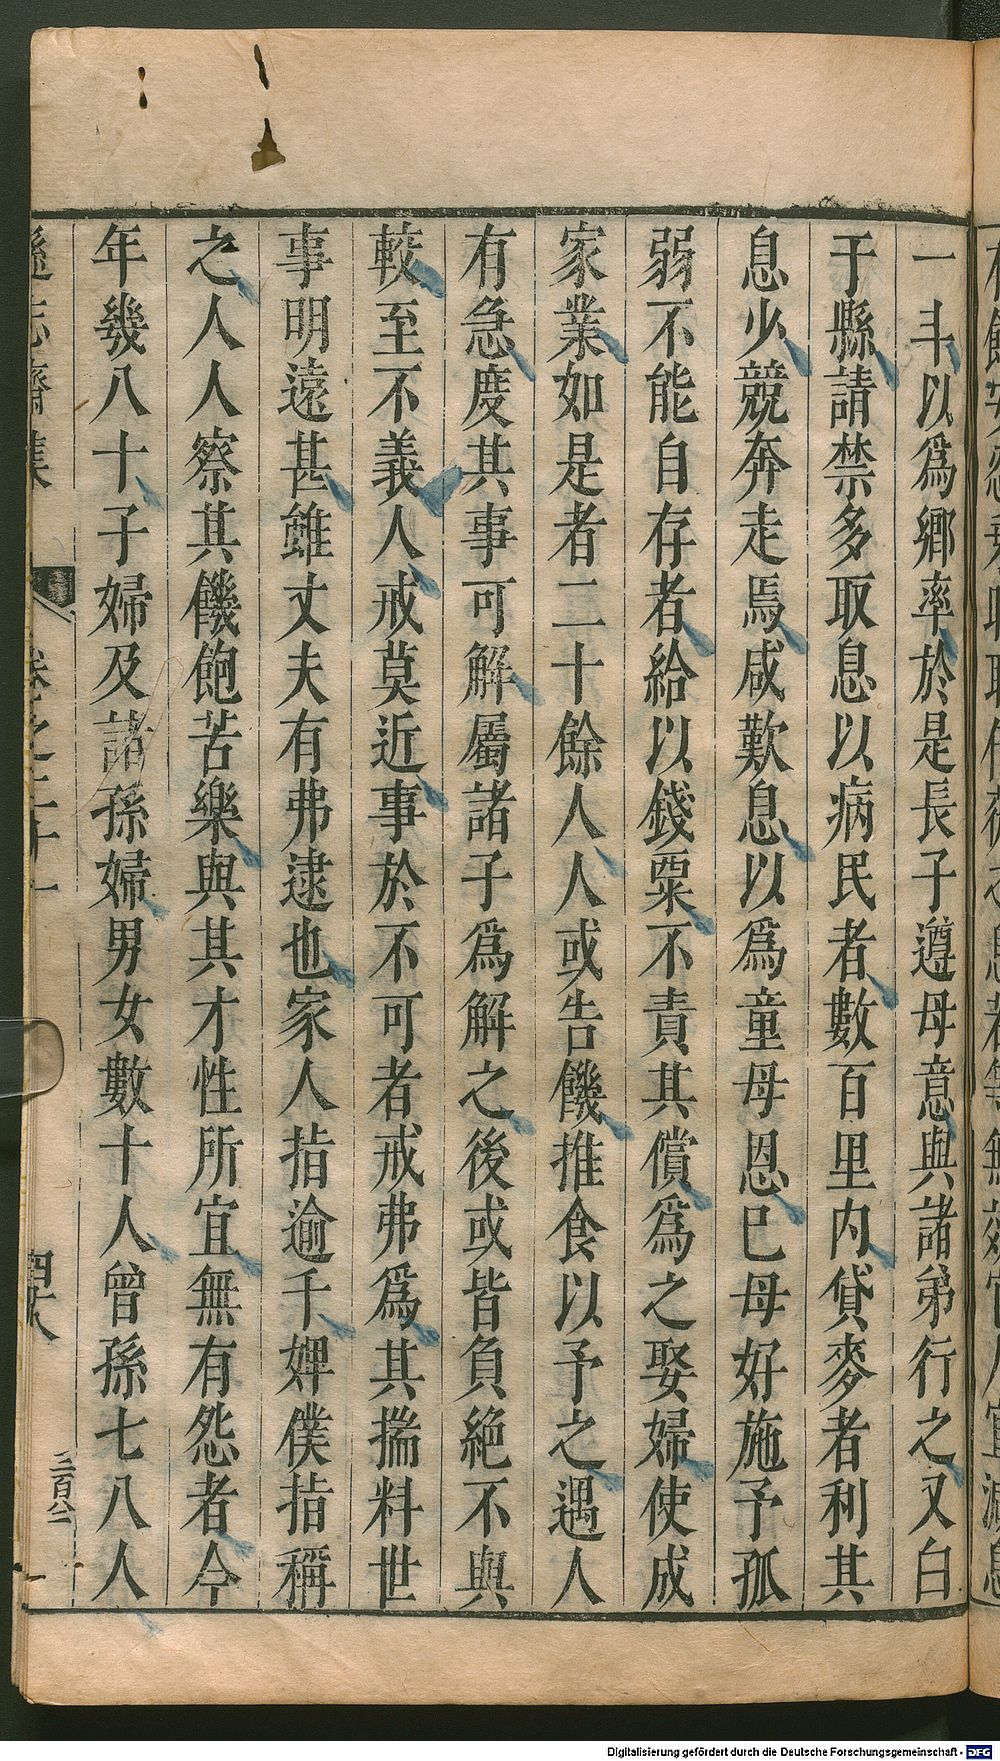 一斗以爲鄉率於是長子遵母意與諸弟行之又白
于縣請禁多取息以病民者數百里内貸麥者利其
息少競奔走焉咸歎息以爲童母恩已母好施予孤
弱不能自存者給以錢粟不責其償爲之娶婦使成
家業如是者二十餘人人或告饑推食以予之遇人
有急度其事可解屬諸子爲解之後或皆負絶不與
較至不義人戒莫近事於不可者戒弗爲其揣料世
事明遠甚雖丈夫有弗逮也家人指逾千婢僕指稱
之人人察其饑飽苦樂與其才性所宜無有怨者今
年幾八十子婦及諸孫婦男女數十人曾孫七八人
遜志齋集
卷之二十一
四十八
三百八
Digitalisierung gefördert durch die Deutsche Forschungsgemeinschaft - DFG